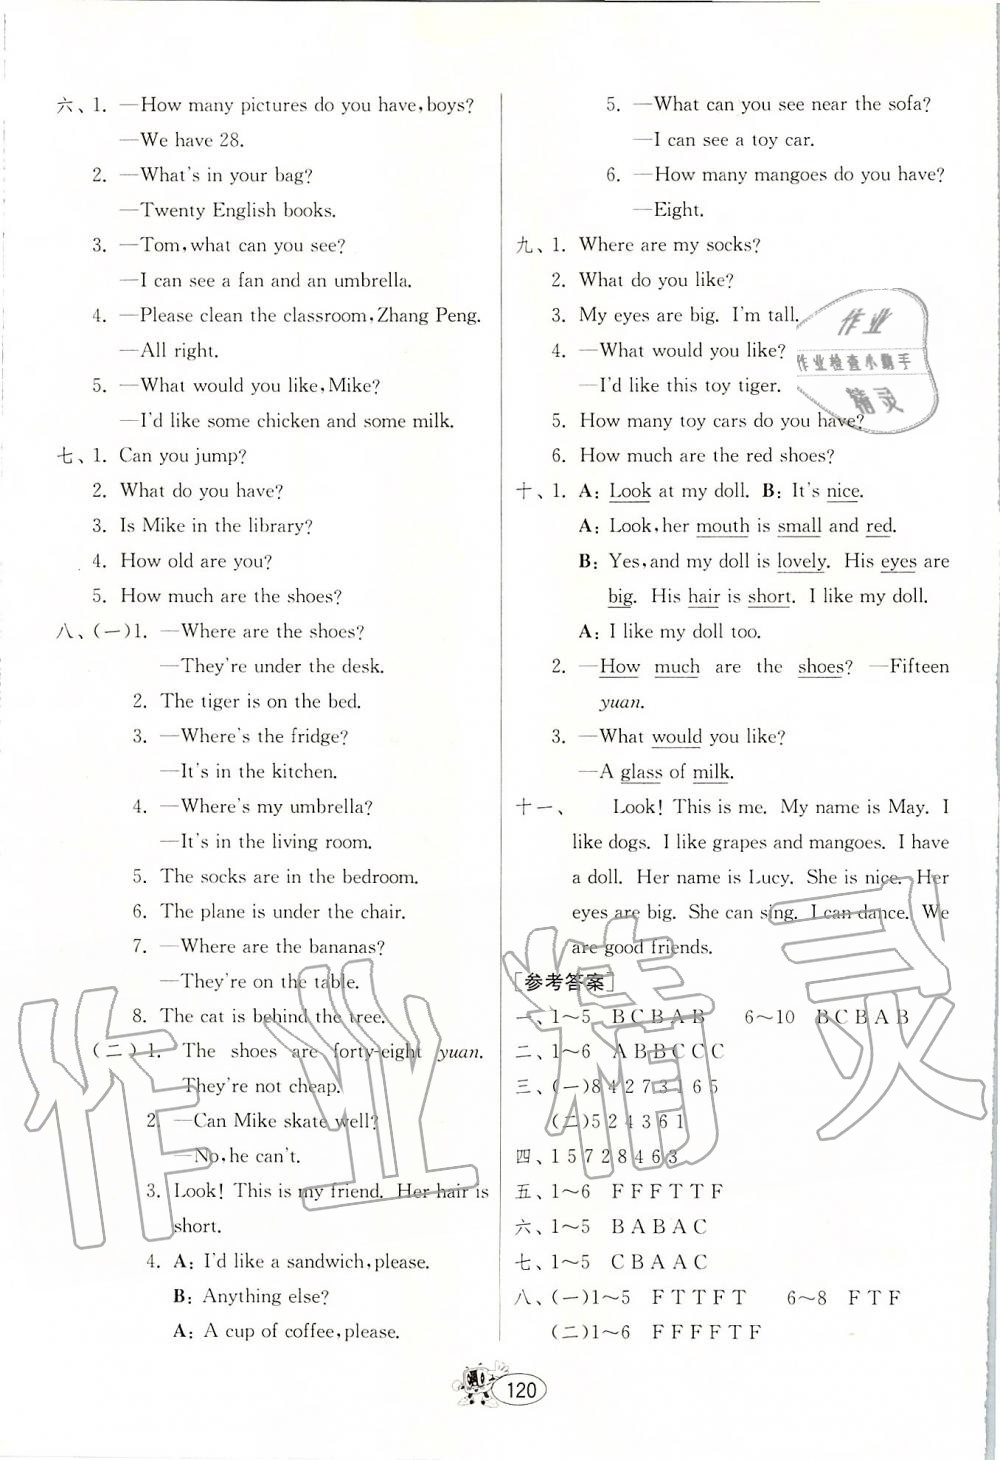 六、1. —How many pictures do you have,boys?
—We have 28.
2. —What's in your bag?
—Twenty English books.
3. —Tom,what can you see?
—I can see a fan and an umbrella.
4. —Please clean the classroom,Zhang Peng.
—All right.
5. —What would you like,Mike?
—I'd like some chicken and some milk.
七、1. Can you jump?
2. What do you have?
3. Is Mike in the library?
4. How old are you?
5. How much are the shoes?
八、(一)1. —Where are the shoes?
—They're under the desk.
2. The tiger is on the bed.
3. —Where's the fridge?
—It's in the kitchen.
4. —Where's my umbrella?
—It's in the living room.
5. The socks are in the bedroom.
6. The plane is under the chair.
7. —Where are the bananas?
—They're on the table.
8. The cat is behind the tree.
(二)1. The shoes are forty-eight yuan.
They're not cheap.
2. —Can Mike skate well?
—No,he can't.
3. Look! This is my friend. Her hair is
short.
4. A: I'd like a sandwich,please.
B: Anything else?
A: A cup of coffee,please.
5. —What can you see near the sofa?
—I can see a toy car.
6. —How many mangoes do you have?
—Eight.
九、1. Where are my socks?
2. What do you like?
3. My eyes are big. I'm tall.
4. —What would you like?
—I'd like this toy tiger.
5. How many toy cars do you have?
6. How much are the red shoes?
十、1. A: Look at my doll. B: It's nice.
A: Look,her mouth is small and red.
B: Yes,and my doll is lovely. His eyes are
big. His hair is short. I like my doll.
A: I like my doll too.
2. —How much are the shoes? —Fifteen
yuan.
3. —What would you like?
—A glass of milk.
十一、 Look! This is me. My name is May. I
like dogs. I like grapes and mangoes. I have
a doll. Her name is Lucy. She is nice. Her
eyes are big. She can sing. I can dance. We
are good friends.
[参考答案]
一、1~5 B C B A B 6~10 B C B A B
二、1~6 A B B C C C
三、(一)8 4 2 7 3 1 6 5
(二)5 2 4 3 6 1
四、1 5 7 2 8 4 6 3
五、1~6 F F F T T F
六、1~5 B A B A C
七、1~5 C B A A C
八、(一)1~5 F T T F T 6~8 F T F
(二)1~6 F F F F T F
120
作业
作业检查小助手
精灵
作业精灵